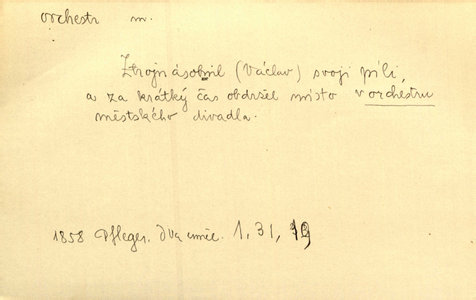 orchestr m.
Ztrojnásobnil (Václav) svoji píli,
a za krátký čas obdržel místo v orchestru
městského divadla.
1858 Pfleger. Dva umělc. 1, 31,